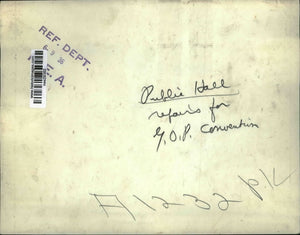 REF. DEPT.
6-9 36
N. E. A.
Public Hall
repairs for
G.O.P. Convention
A1232